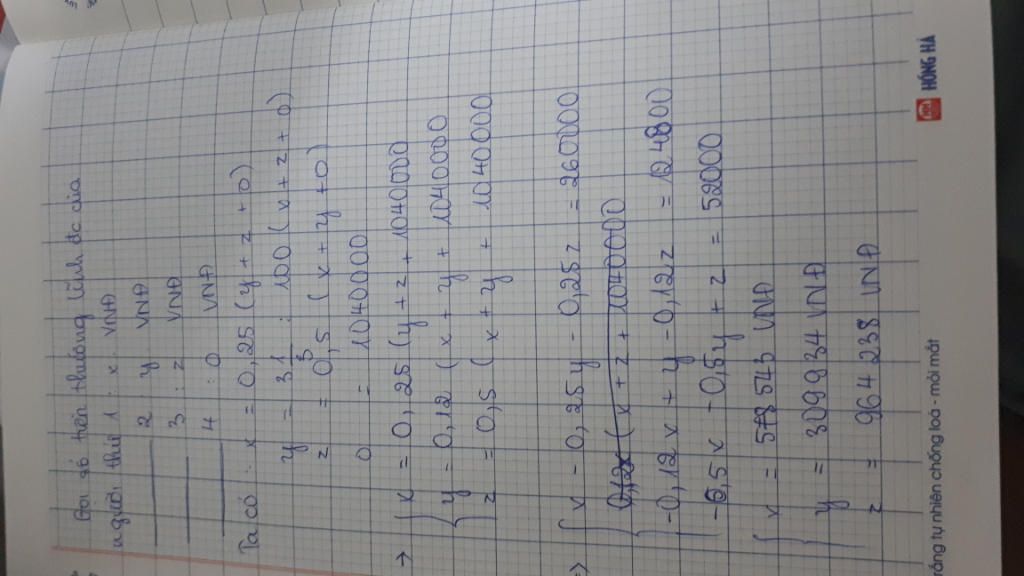 Gọi số tiền thưởng lĩnh đc của
người thứ 1 : x VNĐ
2 : y VNĐ
3 : z VNĐ
4 : 0 VNĐ
Ta có : x = 0,25 (y + z + 0)
y = 3 1/3 : 100 (x + z + 0)
z = 0,5 (x + y + 0)
0 = 1040000
→ { x = 0,25 (y + z + 1040000
y = 0,12 (x + y + 1040000
z = 0,5 (x + y + 1040000
=> { x - 0,25y - 0,25z = 260000
0,12x (x + z + 1040000
-0,12x + y - 0,12z = 124800
-0,5x - 0,5y + z = 52000
{ x = 578543 VNĐ
y = 309934 VNĐ
z = 964238 VNĐ
HỒNG HÀ
trắng tự nhiên chống loá - mỏi mắt